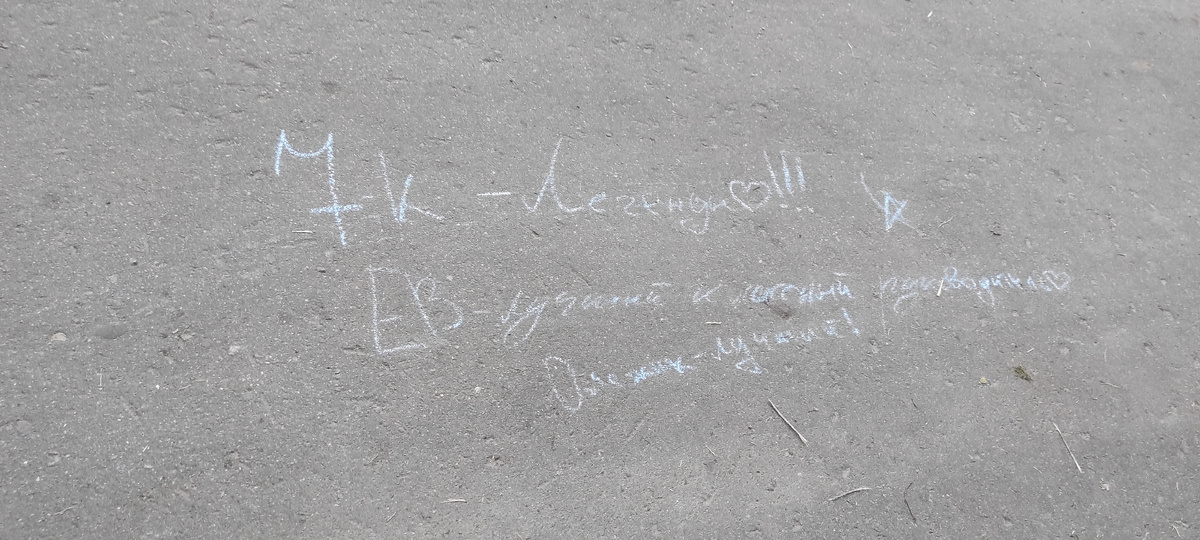 7-К - Легенды♡!!!
ЕВ - лучший классный руководитель♡
лучший!